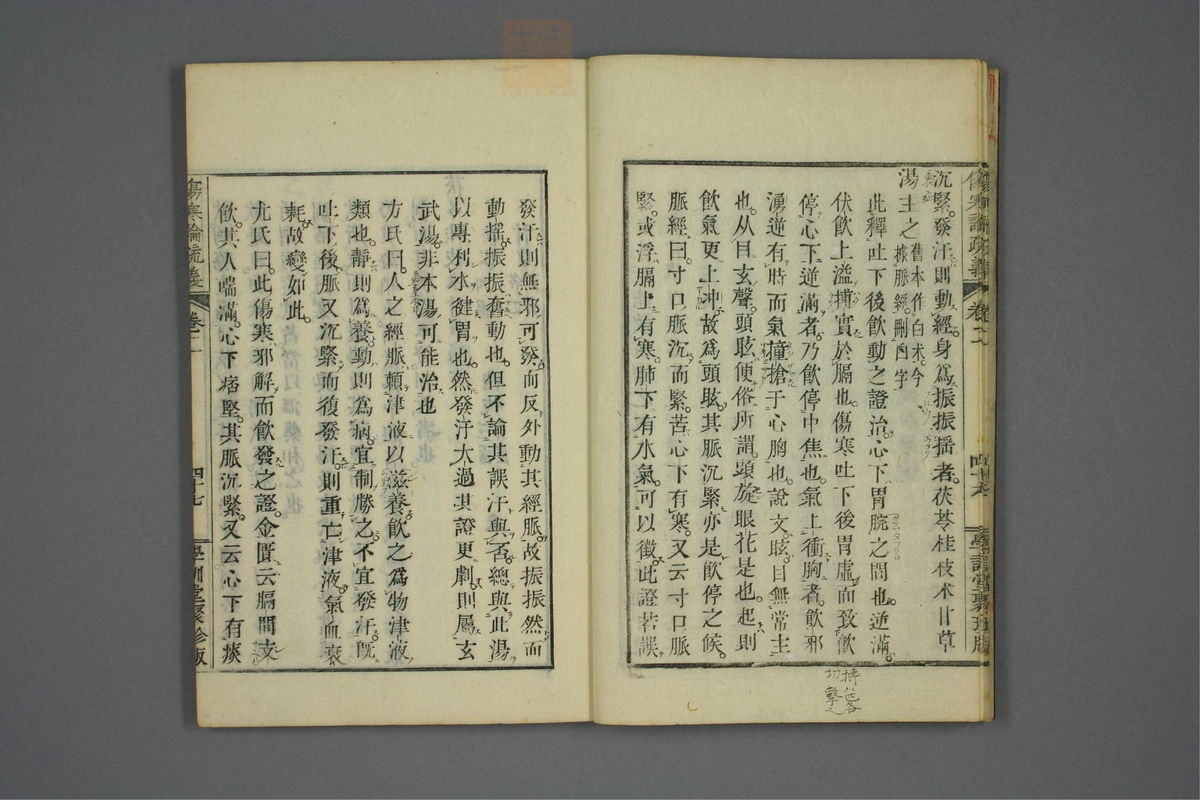 沉緊。發汗則動經。身爲振振搖者。茯苓桂枝朮甘草
湯主之舊本作白朮。今
據脈經。刪白字
此釋吐下後飮動之證治心下胃脘之間也。逆滿。
伏飮上溢搏實於膈也。傷寒吐下後胃虛而致飮
停心下逆滿者。乃飮停中焦也。氣上衝胸者。飮邪
湧逆有時而氣撞搶于心胸也。說文。眩。目無常主
也。从目玄聲。頭眩。便俗所謂。頭旋眼花是也。起則
飮氣更上冲。故爲頭眩。其脈沉緊。亦是飮停之候。
脈經曰。寸口脈沉而緊。苦心下有寒。又云寸口脈
緊。或浮。膈上有寒。肺下有水氣。可以徵。此證若誤
搏伯各
切擊也
發汗。則無邪可發。而反外動其經脈。故振振然而
動搖。振振奮動也。但不論其誤汗與否。總與此湯
以專利水健胃也。然發汗太過其證更劇。則屬玄
武湯。非本湯可能治也
方氏曰。人之經脈。賴津液以滋養飮之爲物津液
類也。靜則爲養。動則爲病。宜制勝之。不宜發汗。旣
吐下後。脈又沉緊而復發汗。則重亡津液。氣血衰
耗。故變如此。
尤氏曰。此傷寒邪解而飮發之證。金匱云膈間支
飮。其人喘滿。心下痞堅。其脈沉緊。又云心下有痰
傷寒論疏義
卷二
四十七
學訓堂聚珍版